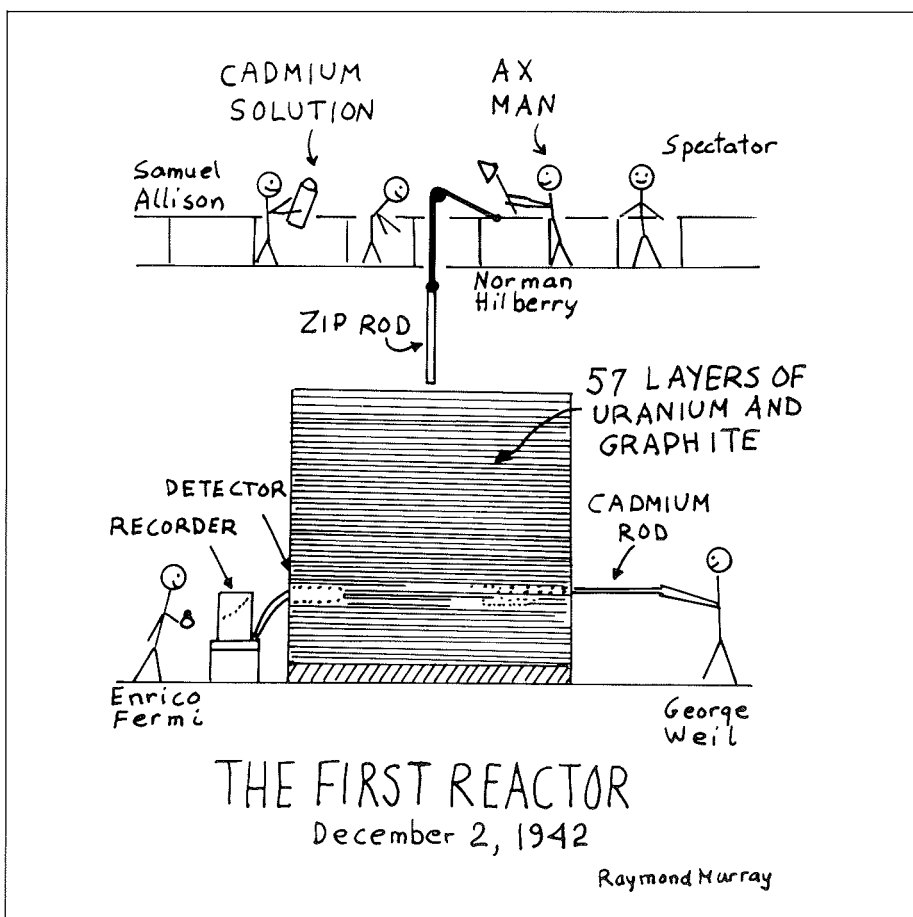 CADMIUM
SOLUTION
AX
MAN
Spectator
Samuel
Allison
Norman
Hilberry
ZIP ROD
57 LAYERS OF
URANIUM AND
GRAPHITE
DETECTOR
RECORDER
CADMIUM
ROD
Enrico
Fermi
George
Weil
THE FIRST REACTOR
December 2, 1942
Raymond Murray